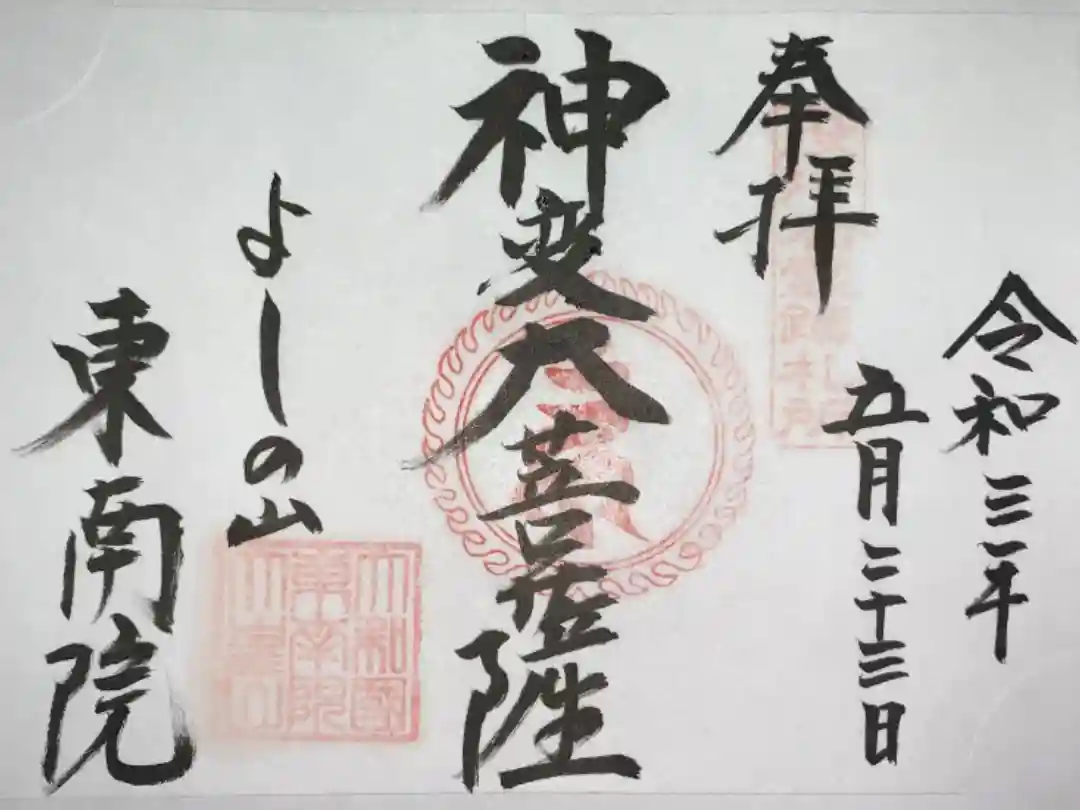 令和三年
五月二十三日
奉拝
神変大菩薩
よしの山
東南院